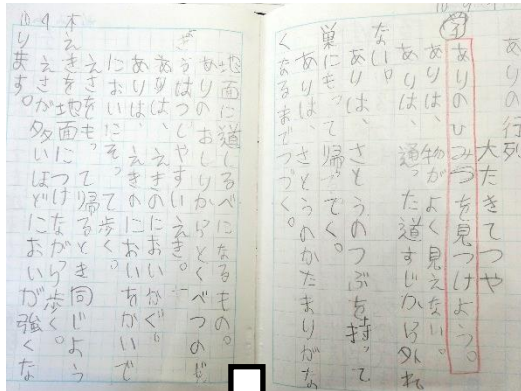 ありの行列
大たきてつや
10 9
学習
ありのひみつを見つけよう。
ありは、物がよく見えない。
ありは、通った道すじから外れ
ない。
ありは、さとうのつぶを持って
巣にもって帰ってく。
ありは、さとうのかたまりがな
くなるまでつづく。
地面に道しるべになるもの。
ありのおしりからとくべつの
うはつしやすいえき。
ありは、えきのにおいかぐ。
ありは、えきのにおいをかいで
においにそって歩く。
えさをもって帰るとき同じよう
えきを地面につけながら歩く。
10 9
えさが多いほどにおいが強くな
ります。